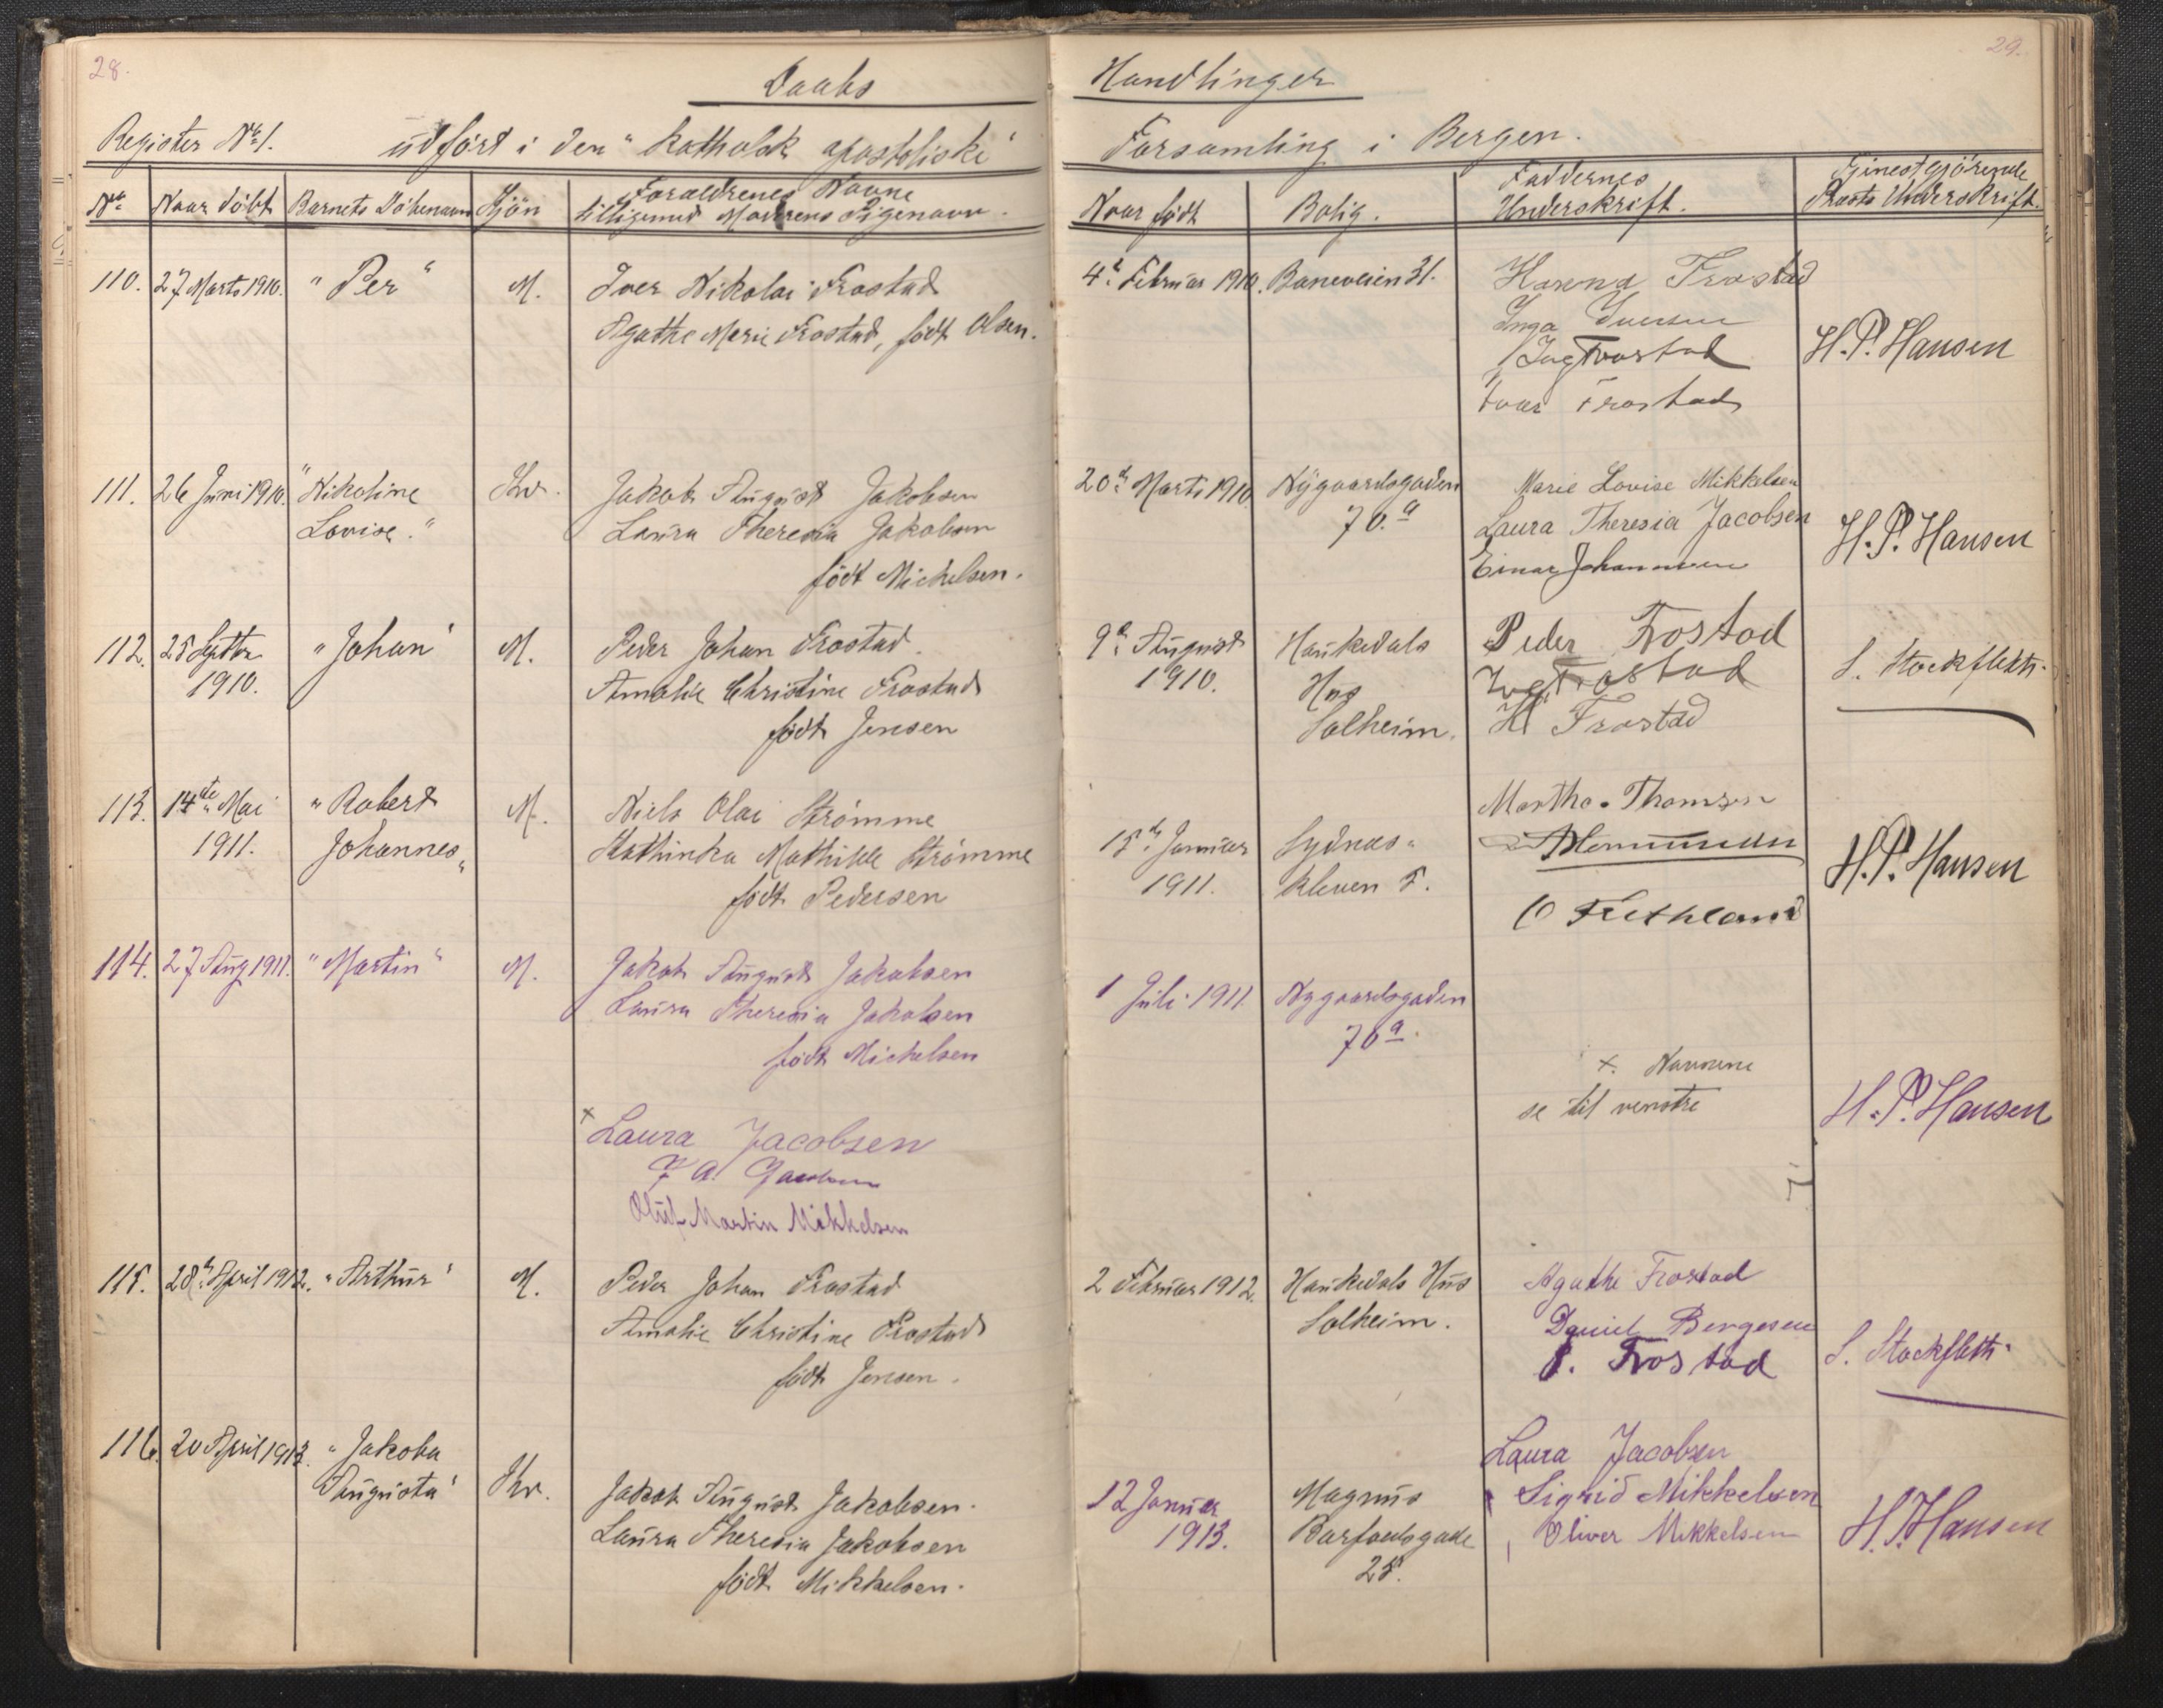 28.
29.
Daabs Handlinger
Register No 1. udført i den "Katholsk apostoliske" Forsamling i Bergen.
No
Naar døbt
Barnets Døbenavn
Kjøn
Forældrenes Navne
tilligemed Moderens Pigenavn.
Naar født
Bolig.
Faddernes
Underskrift.
Tjenestgjørende
Prests Underskrift.
110. 27 Marts 1910. "Per" M.
Iver Nikolai Frostad
Agathe Marie Frostad, født Olsen.
4de Februar 1910. Baneveien 31.
Harena Frostad
Inga Iversen
Ing Frostad
Ivar Frostad
H. P. Hansen
111. 26 Juni 1910. "Nikoline
Lovise." Kv.
Jakob August Jakobsen
Laura Theresia Jakobsen
født Michelsen.
20de Marts 1910 Nygaardsgaden
70.a
Marie Lovise Mikkelsen
Laura Theresia Jacobsen
Einar Johannesen
H. P. Hansen
112. 25 Septbr
1910.
"Johan" M.
Peder Johan Frostad.
Amalie Christine Frostad
født Jensen
9de August
1910.
Haukedals
Hus
Solheim.
Peder Frostad
Ing Frostad
H Frostad
S. Stockfleth.
113. 14de Mai
1911.
"Robert
Johannes" M.
Niels Olai Strømme
Kathinka Mathilde Strømme
født Pedersen
15de Januar
1911.
Sydnes-
kleven 5.
Martha Thomsen
O Fethland
H. P. Hansen
114. 27 Aug 1911. "Martin" M.
Jakob August Jakobsen
Laura Theresia Jakobsen
født Michelsen
1 Juli 1911. Nygaardsgaden
70a.
x. Navnene
se til venstre
H. P. Hansen
x Laura Jacobsen
J A Jacobsen
Oluf Martin Mikkelsen
115. 28de April 1912. "Arthur" M.
Peder Johan Frostad
Amalie Christine Frostad
født Jensen.
2 Februar 1912. Haukedals Hus
Solheim.
Agathe Frostad
Daniel Bergesen
P. Frostad
S. Stockfleth.
116. 20 April 1913. "Jakoba
Augusta" Kv.
Jakob August Jakobsen.
Laura Theresia Jakobsen
født Mikkelsen.
12 Januar
1913.
Magnus
Barfodsgade
25.
Laura Jacobsen
Sigrid Mikkelsen
Oliver Mikkelsen
H. P. Hansen